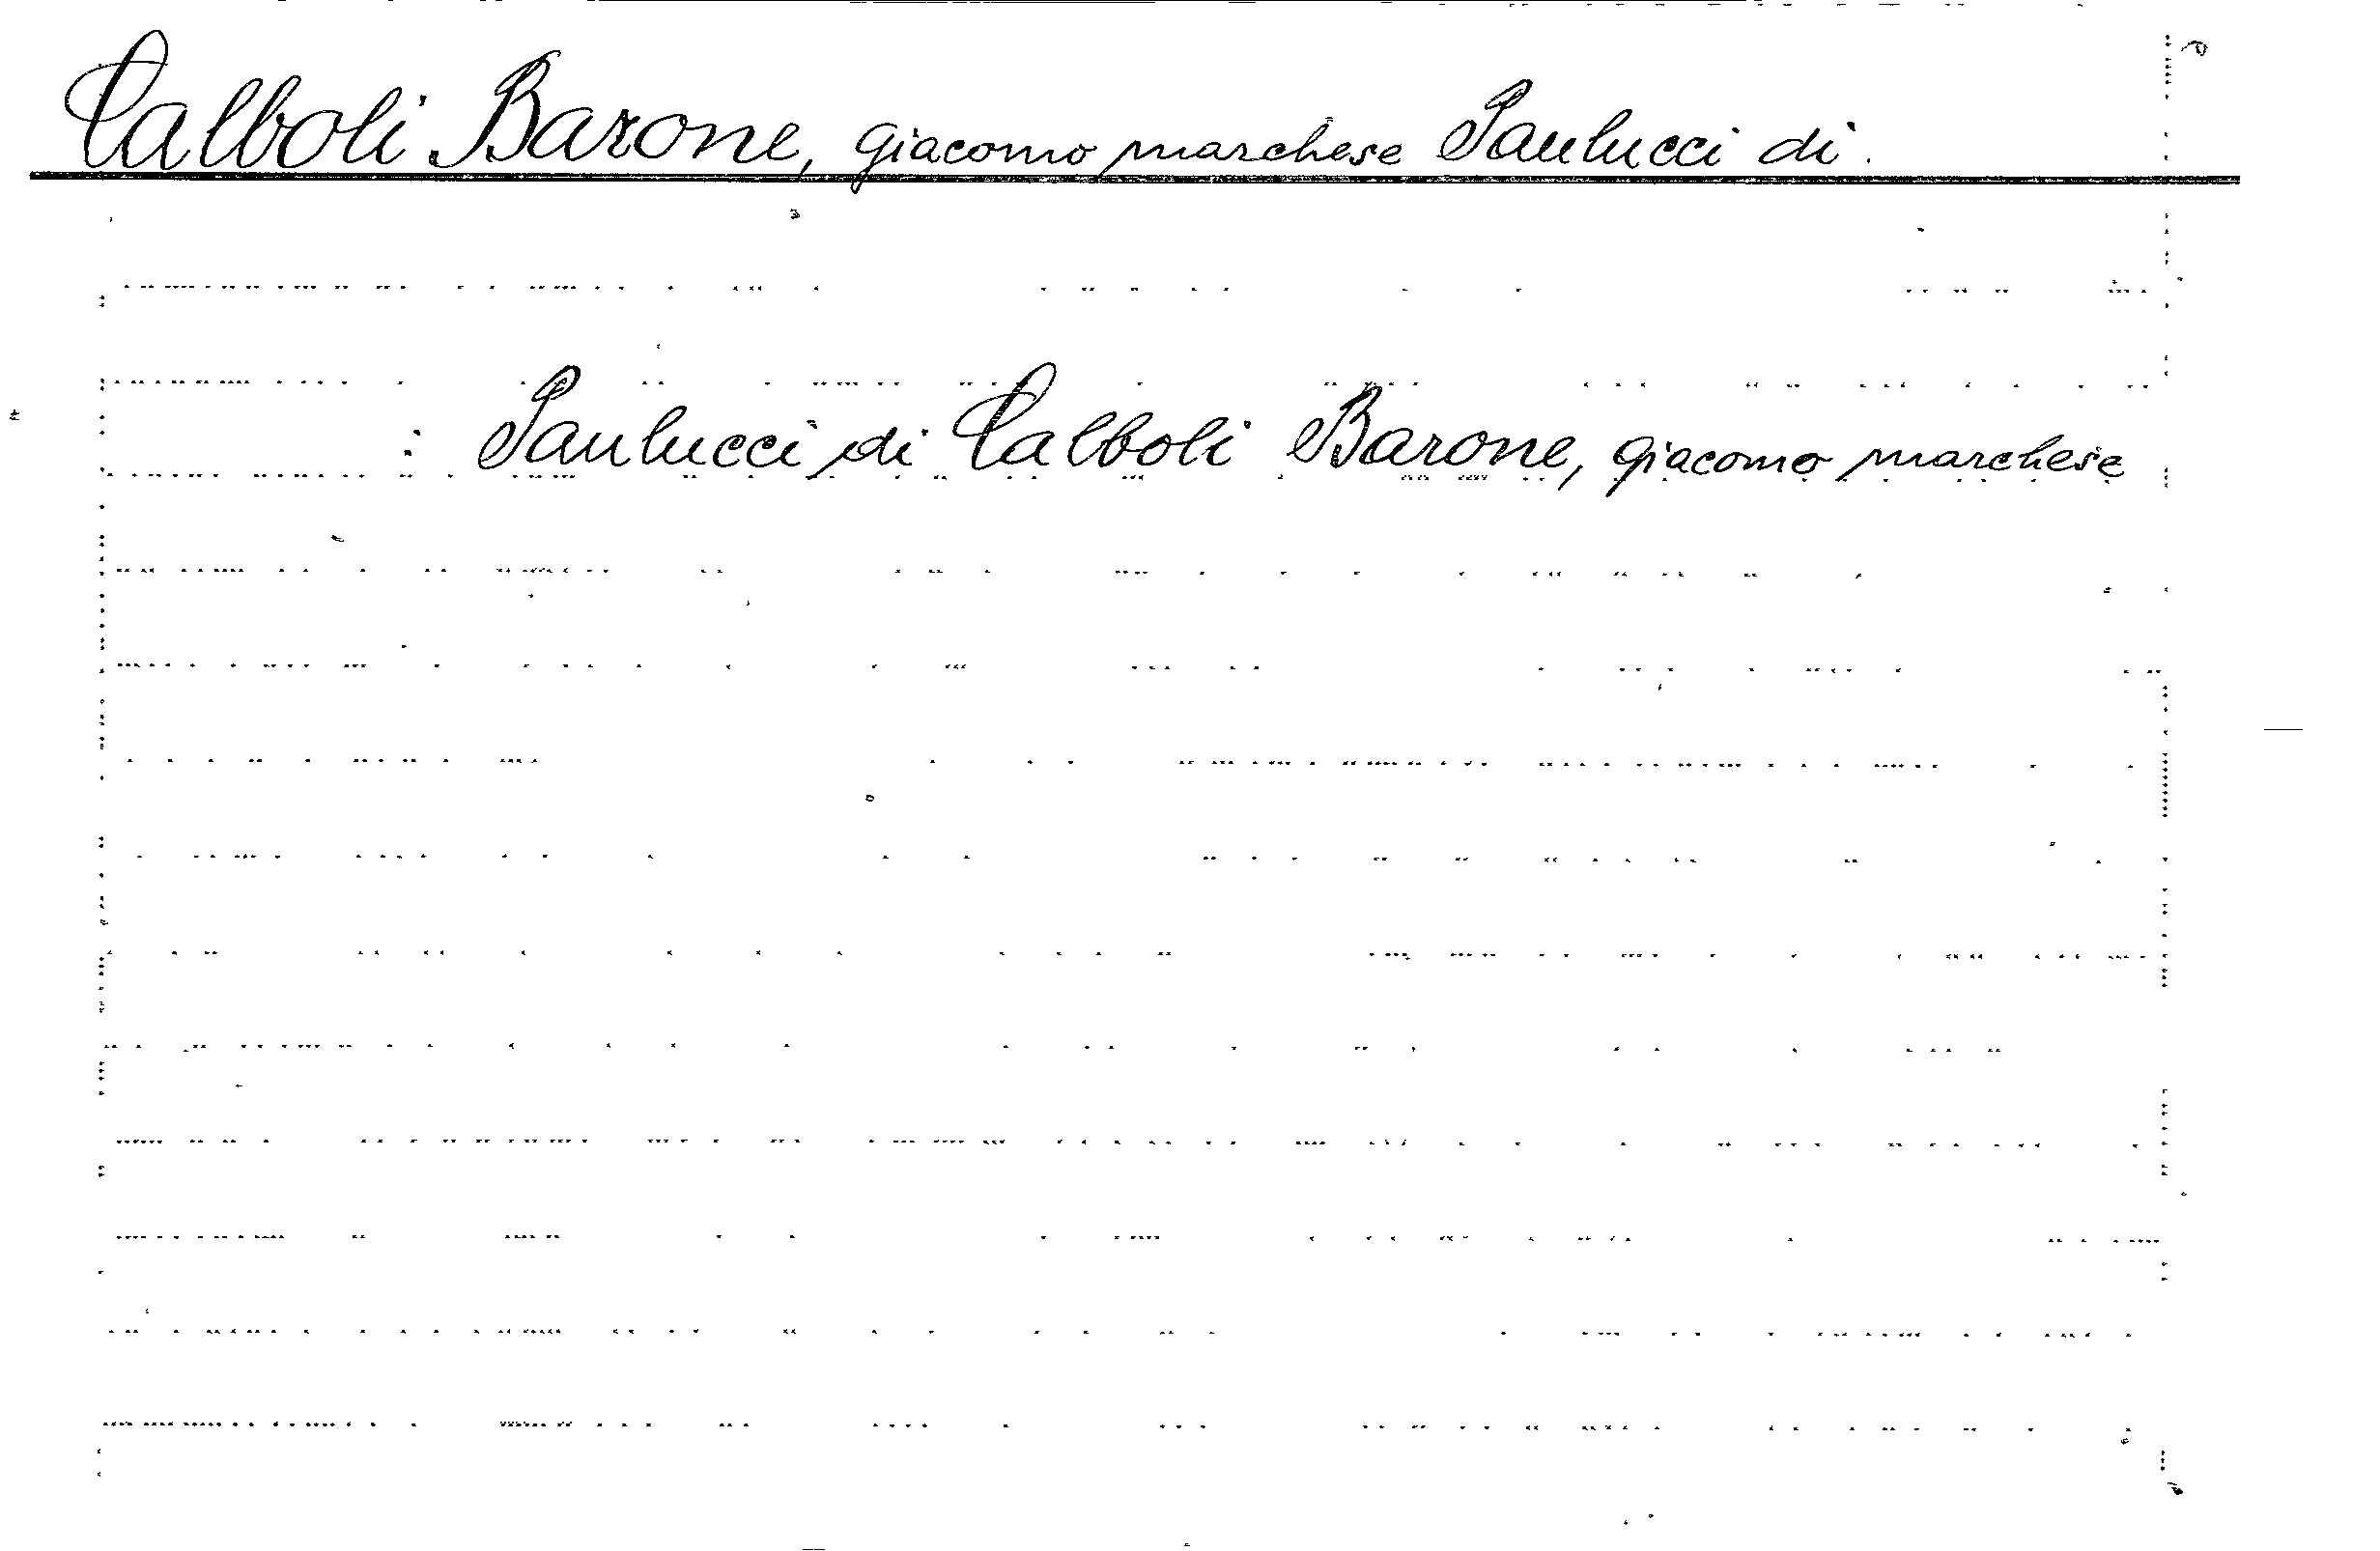 Calboli Barone, Giacomo marchese Paulucci di.
: Paulucci di Calboli Barone, Giacomo marchese